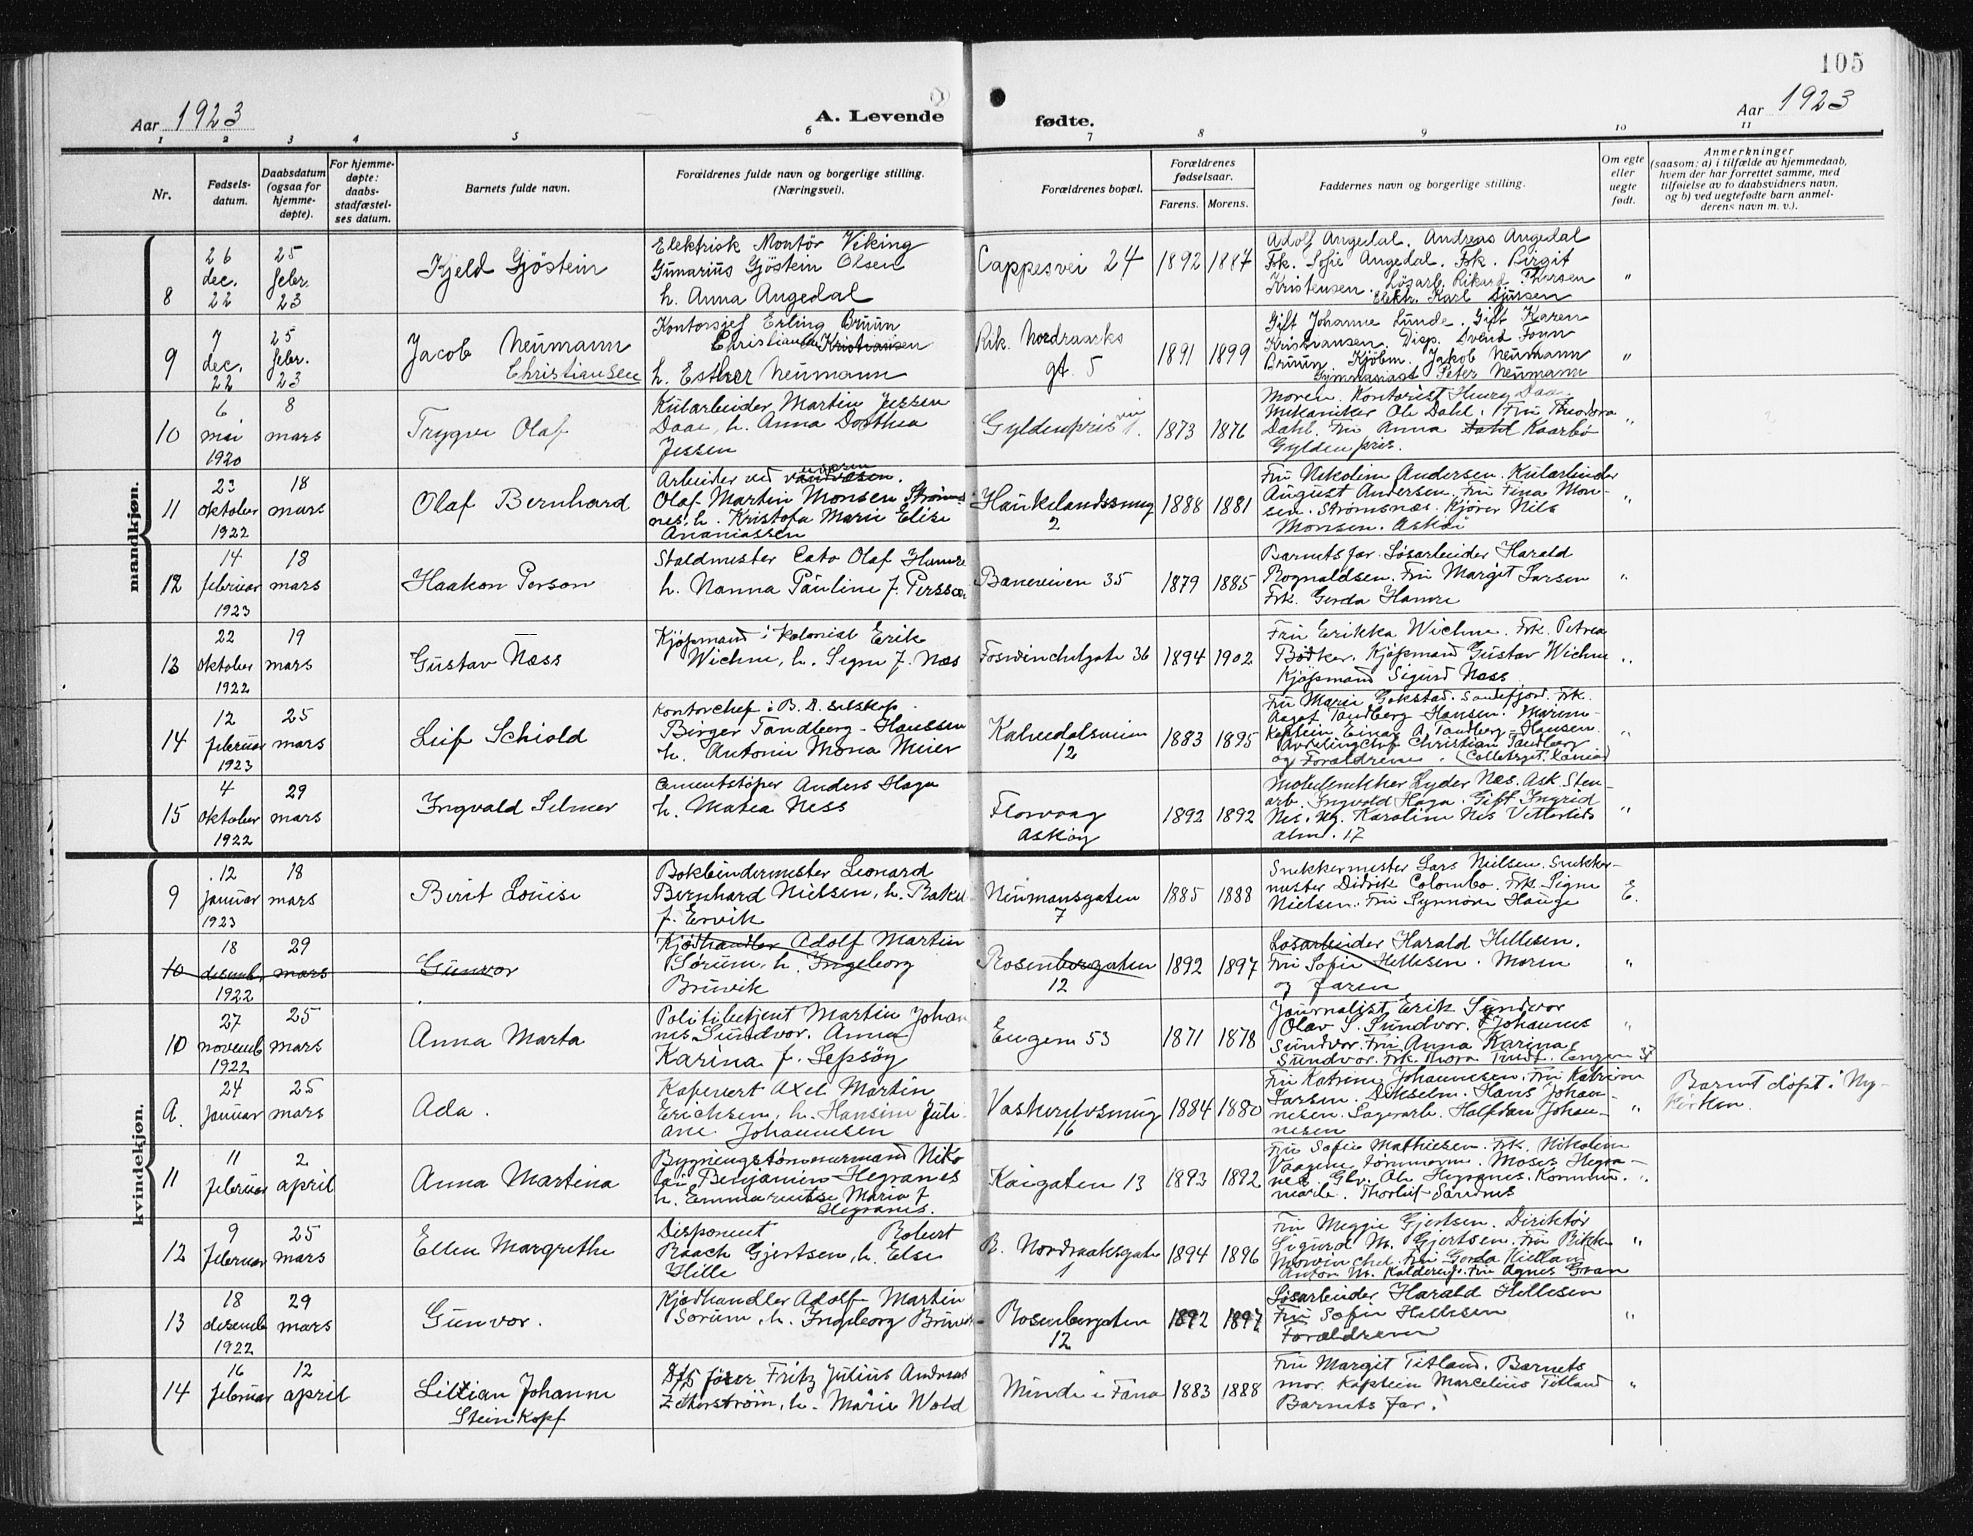 105
Aar 1923
A. Levende
fødte.
Aar 1923
1 2 3 4 5 6 7 8 9 10 11
Nr.
Fødsels-
datum.
Daabsdatum
(ogsaa for
hjemme-
døpte).
For hjemme-
døpte:
daabs-
stadfæstel-
ses datum.
Barnets fulde navn.
Forældrenes fulde navn og borgerlige stilling.
(Næringsvei).
Forældrenes bopæl.
Forældrenes
fødselsaar.
Farens. Morens.
Faddernes navn og borgerlige stilling.
Om egte
eller
uegte
født.
Anmerkninger
(saasom: a) i tilfælde av hjemmedaab,
hvem der har forrettet samme, med
tilføielse av to daabsvidners navn,
og b) ved uegtefødte barn anmel-
derens navn m. v.).
mandkjøn.
8
26
dec.
22
25
febr.
23
Kjeld Gjöstein
Elektrisk Montör Viking
Gunarius Gjöstein Olsen
h. Anna Angedal
Cappesvei 24
1892 1887
Adolf Angedal. Andreas Angedal
Frk. Sofie Angedal. Frk. Birgit
Kristensen. Løsarb. Rikard Thorsen
Elektr. Karl Djursen
"
9
7
dec.
22
25
febr.
23
Jacob Neumann
Christiansen
Kontorsjef Erling Bruun
Christiansen Kristiansen
h. Esther Neumann
Rik. Nordraaks
gt. 5
1891 1899
Gift Johanne Lunde. Gift Karen
Kristiansen. Disp. Svend Foyn
Bruun Kjöbm. Jakob Neumann
Gymnasiast Peter Neumann
"
10
6
mai
1920
8
mars
Trygve Olaf
Kularbeider Martin Jessen
Daae, h. Anna Dorthea
Jessen
Gyldenpris vei 1.
1873 1876
Moren. Kontorist Henry Daae.
Mekaniker Ole Dahl. Fru Theodora
Dahl. Fru Anna Dahl Kaarbö
Gyldenpris.
"
11
23
oktober
1922
18
mars
Olaf Bernhard
Arbeider ved
Olaf Martin Monsen Strøms-
nes, h. Kristofa Marie Elise
Ananiassen
Haukelandssmug
2
1888 1881
Fru Nikoline Andersen. Kularbeider
August Andersen. Fru Fina Mon-
sen. Strømsnæs. Kjörer Nils
Monsen. Askøi
"
12
14
februar
1923
18
mars
Haakon Person
Staldmester Cato Olaf Hamre
h. Nanna Pauline f. Persson
Baneveien 35
1879 1885
Barnets far. Løsarbeider Harald
Rognaldsen. Fru Margit Larsen
Frk. Gerda Hamre
"
13
22
oktober
1922
19
mars
Gustav Næss
Kjøpmand i kolonial Erik
Wichne, h. Signe f. Næs
Foswinckelgate 36
1894 1902
Fru Erikka Wichne. Frk. Petrea
Bödker. Kjøpmand Gustav Wichne
Kjøpmand Sigurd Næss
"
14
12
februar
1923
25
mars
Leif Schiold
Kontorchef i B. D. selskap.
Birger Tandberg-Hanssen
h. Antonie Mona Meier
Kalvedalsveien
12
1883 1895
Fru Marie Gokstad. Sandefjord. Frk.
Aagot Tandberg Hansen. Marine-
kaptein Einar A. Tandberg-Hansen.
Avdelingchef Christian Tandberg
og Forældrene.
"
15
4
oktober
1922
29
mars
Ingvald Selmer
Cementstøper Anders Haga
h. Matea Ness
Florvaag
Askøy
1892 1892
Møbelsnekker Lyder Nes. Ask. Sten-
arb. Ingvald Haga. Gift Ingrid
Nes. Ug. Karoline Nes Vetterlids
alm. 17
"
kvindekjøn.
9
12
januar
1923
18
mars
Berit Louise
Bokbindermester Leonard
Bernhard Nielsen, h. Rakel
f. Ervik
Neumansgaten
7
1885 1888
Snekkermester Lars Nielsen. Snekker-
mester Didrik Colombo. Frk. Signe
Nielsen. Fru Synnöve Hauge
E.
10
18
desemb.
1922
29
mars
Gunvor
Kjødhandler Adolf Martin
Sörum, h. Ingeborg
Bruvik
Rosenbergaten
12
1892 1897
Løsarbeider Harald Hellesen.
Fru Sofie Hellesen. Moren
og faren
"
10
27
novemb.
1922
25
mars
Anna Marta
Politibetjent Martin Johan-
nes Sundvor. Anna
Karina f. Sepsøy
Engen 53
1871 1878
Journalist Erik Sundvor
Olav S. Sundvor. Johannes
Sundvor. Fru Anna Karina
Sundvor. Frk. Thora
"
A.
24
januar
25
mars
Ada.
Axel Martin
Erichsen, h. Hansine Juli-
ane Johannesen
Vaskerelvsmug
16
1884 1880
Fru Katrine Johannesen. Fru Katrine
Larsen. Hans Johan-
nesen. Lagerarb. Halfdan Johan-
nesen
"
Barnet døpt i Ny-
kirken.
11
11
februar
2
april
Anna Martina
Bygningstömmermand Niko-
lai Benjamin Hegranes
h. Emma Maria f.
Hegranes.
Kaigaten 13
1893 1892
Fru Sofie Mathiesen. Frk. Nikoline
Vaagene. Tömmerm. Moses Hegra-
nes. Ole Hegranes. Kommu-
nearb. Thorleif Sandnes
"
12
9
februar
25
mars
Ellen Margrethe
Disponent Robert
Raach Gjertsen, h. Else
Hille
R. Nordraaksgate
1
1894 1896
Fru Meggie Gjertsen. Direktör
Sigurd M. Gjertsen. Fru
Fru Gerda Kielland
Anton M. Fru Agnes Gran
"
13
18
desemb.
1922
29
mars
Gunvor.
Kjødhandler Adolf Martin
Sorum, h. Ingeborg Bruvik
Rosenbergaten
12
1892 1897
Løsarbeider Harald Hellesen
Fru Sofie Hellesen
Forældrene
"
14
16
februar
12
april
Lillian Johanne
Steinkopf
fører Fritz Julius Andreas
Zetterström, h. Marie Wold
Minde i Fana
1883 1888
Fru Margit Titland. Barnets
mor. Kaptein Marcelius Titland
Barnets far.
"